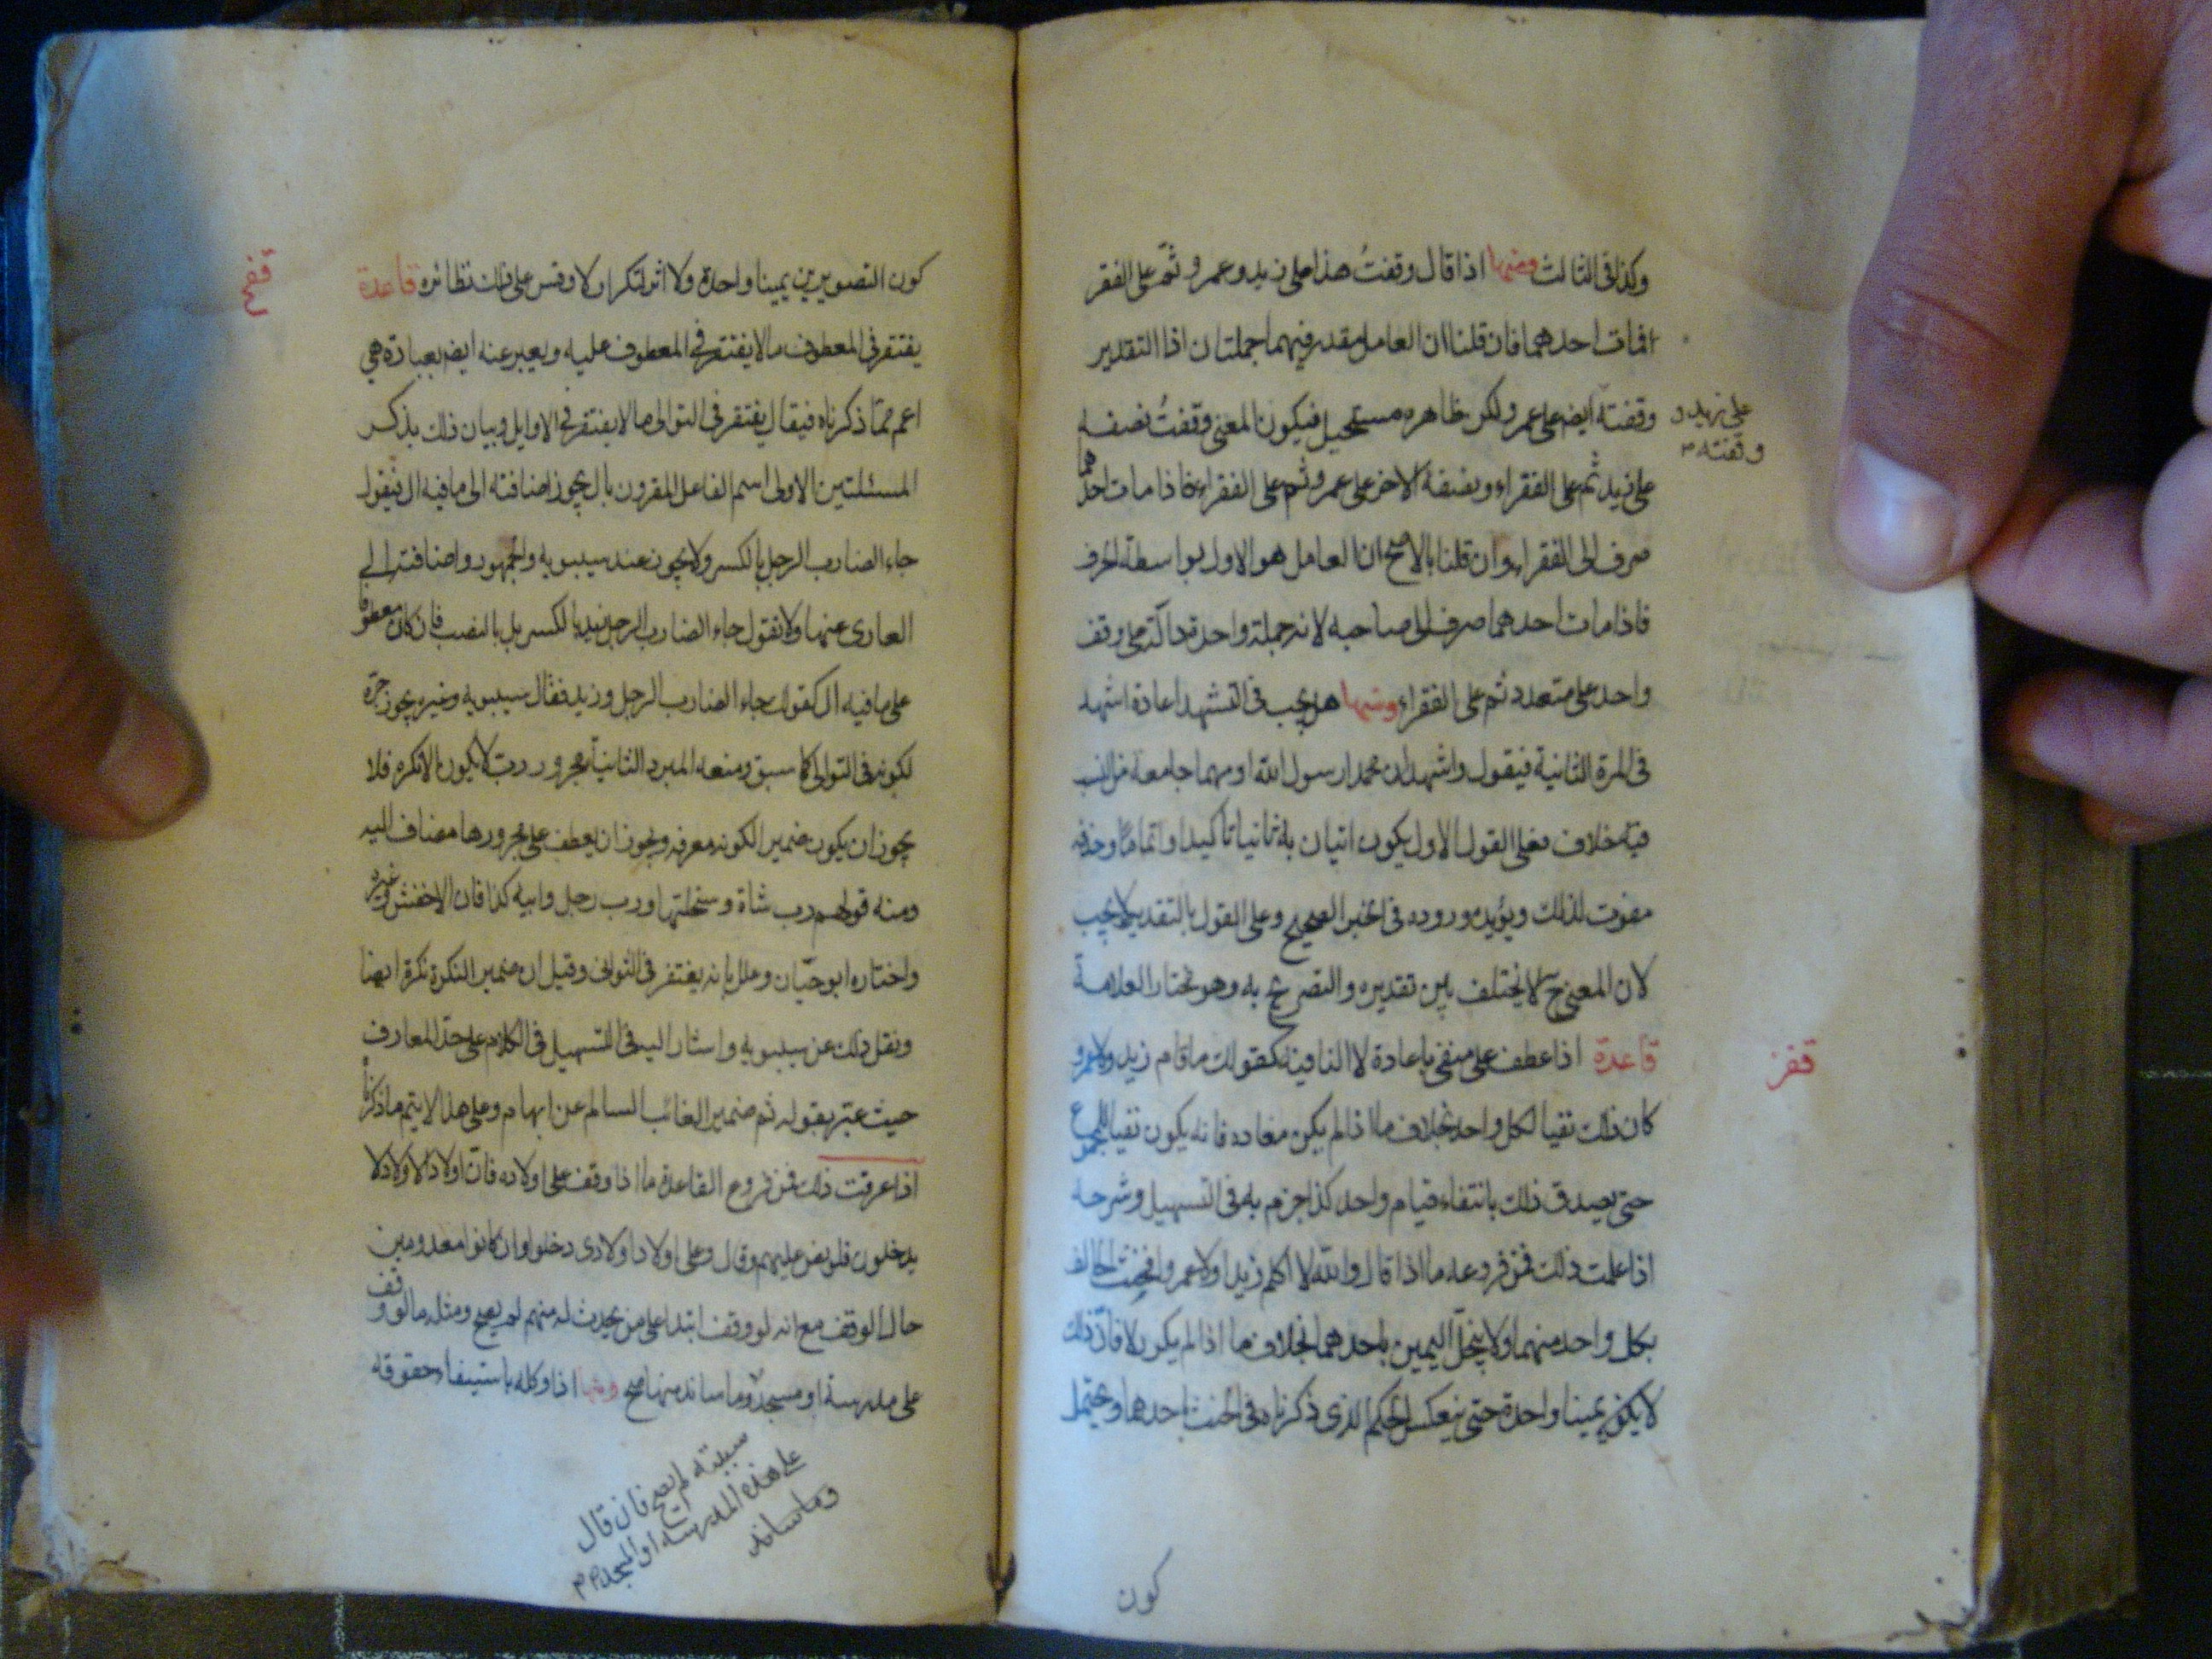 وكذا في الثالث ومنها اذا قال وقفتُ هذا على زيد وعمرو ثم على الفقر
افمات احدهما فان قلنا ان العامل مقدر فيهما جملتان اذا التقدير
وقفته ايضا على عمرو لكن ظاهره مستحيل فيكون المعنى وقفتُ نصفه
على زيد و
وقفته م
على زيد ثم على الفقراء ونصفه الاخر على عمرو ثم على الفقراء فاذا مات احدهما
صرف الى الفقراء وان قلنا بالاصح ان العامل هو الاول بواسطة الحرف
فاذا مات احدهما صرف الى صاحبه لانه جملة واحدة دالة على وقف
واحد على متعدد ثم على الفقراء ومنها هل يجب في التشهد اعادة اشهد
في المرة الثانية فيقول واشهد ان محمدا رسول الله
فيه خلاف فعلى القول الاول يكون اتيان به ثانيا تاكيدا واتماما وحذفه
مفوت لذلك ويؤيده وروده في الخبر الصحيح وعلى القول بالتقدير لا يجب
لان المعنى ح لا يختلف بين تقديره والتصريح به وهو مختار العلامة
قاعدة اذا عطف على منفي باعادة لا النافية كقولك ما قام زيد ولا عمرو
قفز
كان ذلك نفيا لكل واحد بخلاف ما اذا لم يكن معاده فانه يكون نفيا للمجموع
حتى يصدق ذلك بانتفاء قيام واحد كذا جزم به في التسهيل وشرحه
اذا علمت ذلك فمن فروعه ما اذا قال والله لا اكلم زيدا ولا عمروا فيحنث الحالف
بكل واحد منهما ولا ينحل اليمين باحدهما بخلاف ما اذا لم يكن لا فان ذلك
لا يكون يمينا واحدة حتى ينعكس الحكم الذي ذكرناه في الحنث باحدهما ويحتمل
كون
كون التصويرين يمينا واحدة ولا اثر لتكرار لا وقس على ذلك نظائره قاعدة
يغتفر في المعطوف ما لا يغتفر في المعطوف عليه ويعبر عنه ايضا بعبارة هي
اعم مما ذكرناه فيقال يغتفر في التوالي ما لا يغتفر في الاوايل وبيان ذلك بذكر
المسئلتين الاولى اسم الفاعل المقرون بال يجوز اضافته الى ما فيه ال فيقول
جاء الضارب الرجل بالكسر ولا يجوز عند سيبويه والجمهور واضافته الى
العاري عنها ولا تقول جاء الضارب الرجل زيد بالكسر بل بالنصب فان كان معطوفا
على ما فيه ال كقولك جاء الضارب الرجل وزيد فقال سيبويه وغيره يجوز جره
لكونه في التوالي كما سبق ومنعه المبرد الثانية مجرور رب لا يكون الا نكرة فلا
يجوز ان يكون ضميرا لكونه معرفة ويجوز ان يعطف على مجرورها مضاف اليه
ومنه قولهم رب شاة وسخلتها ورب رجل وابيه كذا قال الاخفش وغيره
واختاره ابو حيان وعلل بانه يغتفر في التوالي وقيل ان ضمير النكرة نكرة ايضا
ونقل ذلك عن سيبويه واشار اليه في التسهيل في الكلام على حد المعارف
حيث عبر بقوله ثم ضمير الغائب السالم عن ابهام وعلى هذا لا يتم ما ذكرنا
اذا عرفت ذلك فمن فروع القاعدة ما اذا وقف على اولاده فان اولاد الاولاد لا
يدخلون فلو نص عليهم وقال وعلى اولاد اولادي دخلوا وان كانوا معدومين
حال الوقف مع انه لو وقف ابتدا على من يحدث له منهم لم يصح ومثله ما لو وقف
على مدرسة او مسجد وما ساند منها صح ومنها اذا وكله باستيفاء حقوقه
سيبنيه لم يصح فان قال
على هذه المدرسة او المسجد م م
وما ساند